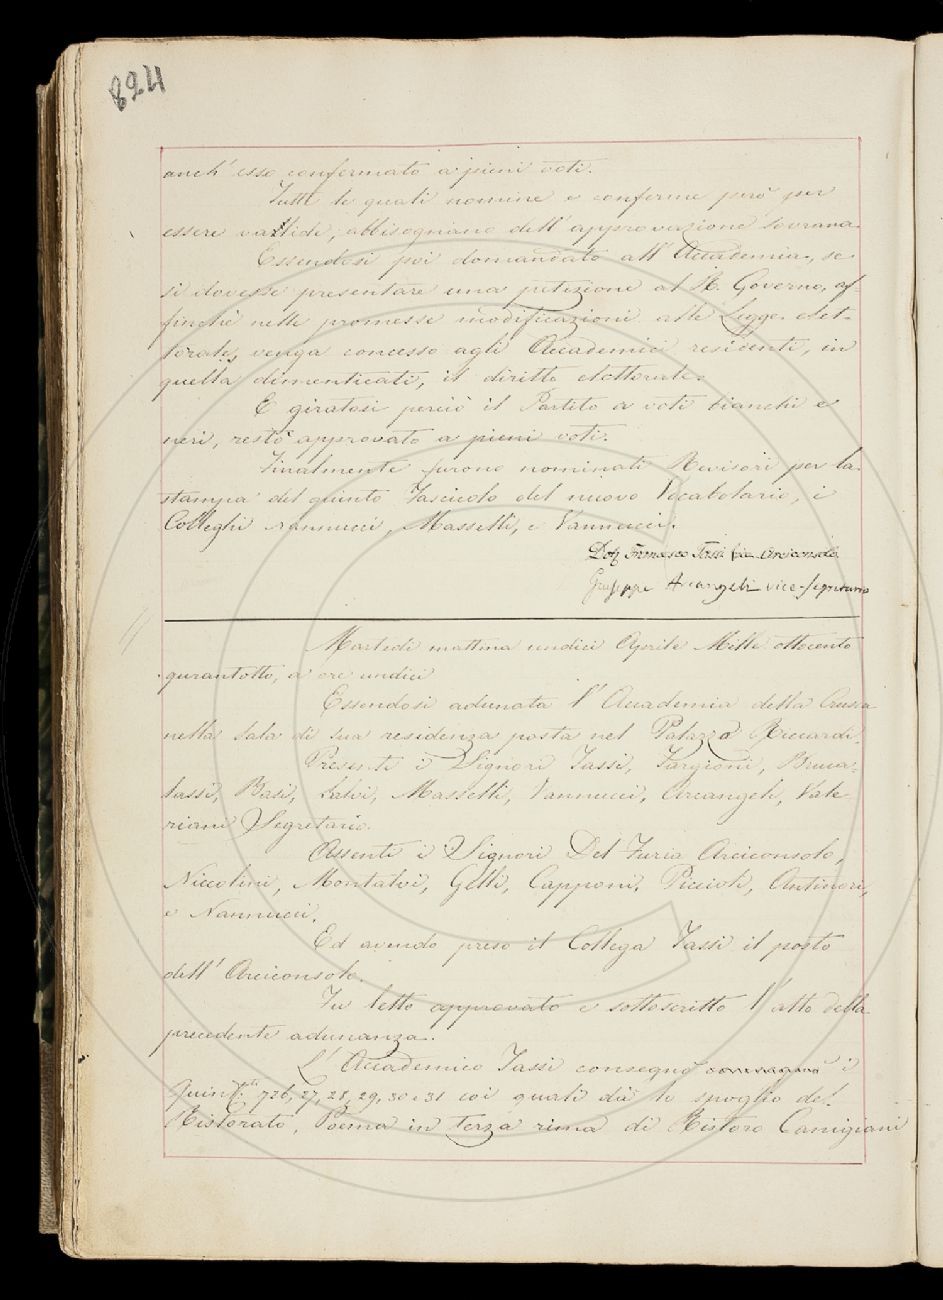 824
anch' esso confermato a pieni voti.
Tutte le quali nomine e conferme però per
essere vallide, abbisognano dell' approvazione Sovrana.
Essendosi poi domandato all' Accademia, se
si dovesse presentare una petizione al R. Governo, af-
finchè nelle promesse modificazioni alle Legge elet-
torale, venga concesso agli Accademici residenti, in
quella dimenticati, il diritto elettorale.
E giratosi perciò il Partito a voti bianchi e
neri, restò approvato a pieni voti.
Finalmente furono nominati Revisori per la
stampa del quinto Fascicolo del nuovo Vocabolario, i
Colleghi Nannucci, Masselli, e Vannucci.
Dott Francesco Tassi Arciconsolo
Giuseppe Arcangeli vice-Segretario
Martedi mattina undici Aprile Mille ottocento
quarantotto, a ore undici
Essendosi adunata l' Accademia della Crusca
nella Sala di sua residenza posta nel Palazzo Riccardi.
Presenti i Signori Tassi, Targioni, Brucia-
tassi, Basi, Salvi, Masselli, Vannucci, Arcangeli, Vale-
riani Segretario.
Assenti i Signori Del Furia Arciconsolo,
Niccolini, Montalvi, Gelli, Capponi, Piccioli, Antinori,
e Nannucci.
Ed avendo preso il Collega Tassi il posto
dell' Arciconsolo.
Fu letto approvato e sottoscritto l' atto della
precedente adunanza.
L' Accademico Tassi consegnò i
Quint.ni 726, 27, 28, 29, 30 e 31 coi quali dà lo spoglio del
Ristorato, Poema in terza rima di Ristoro Canigiani